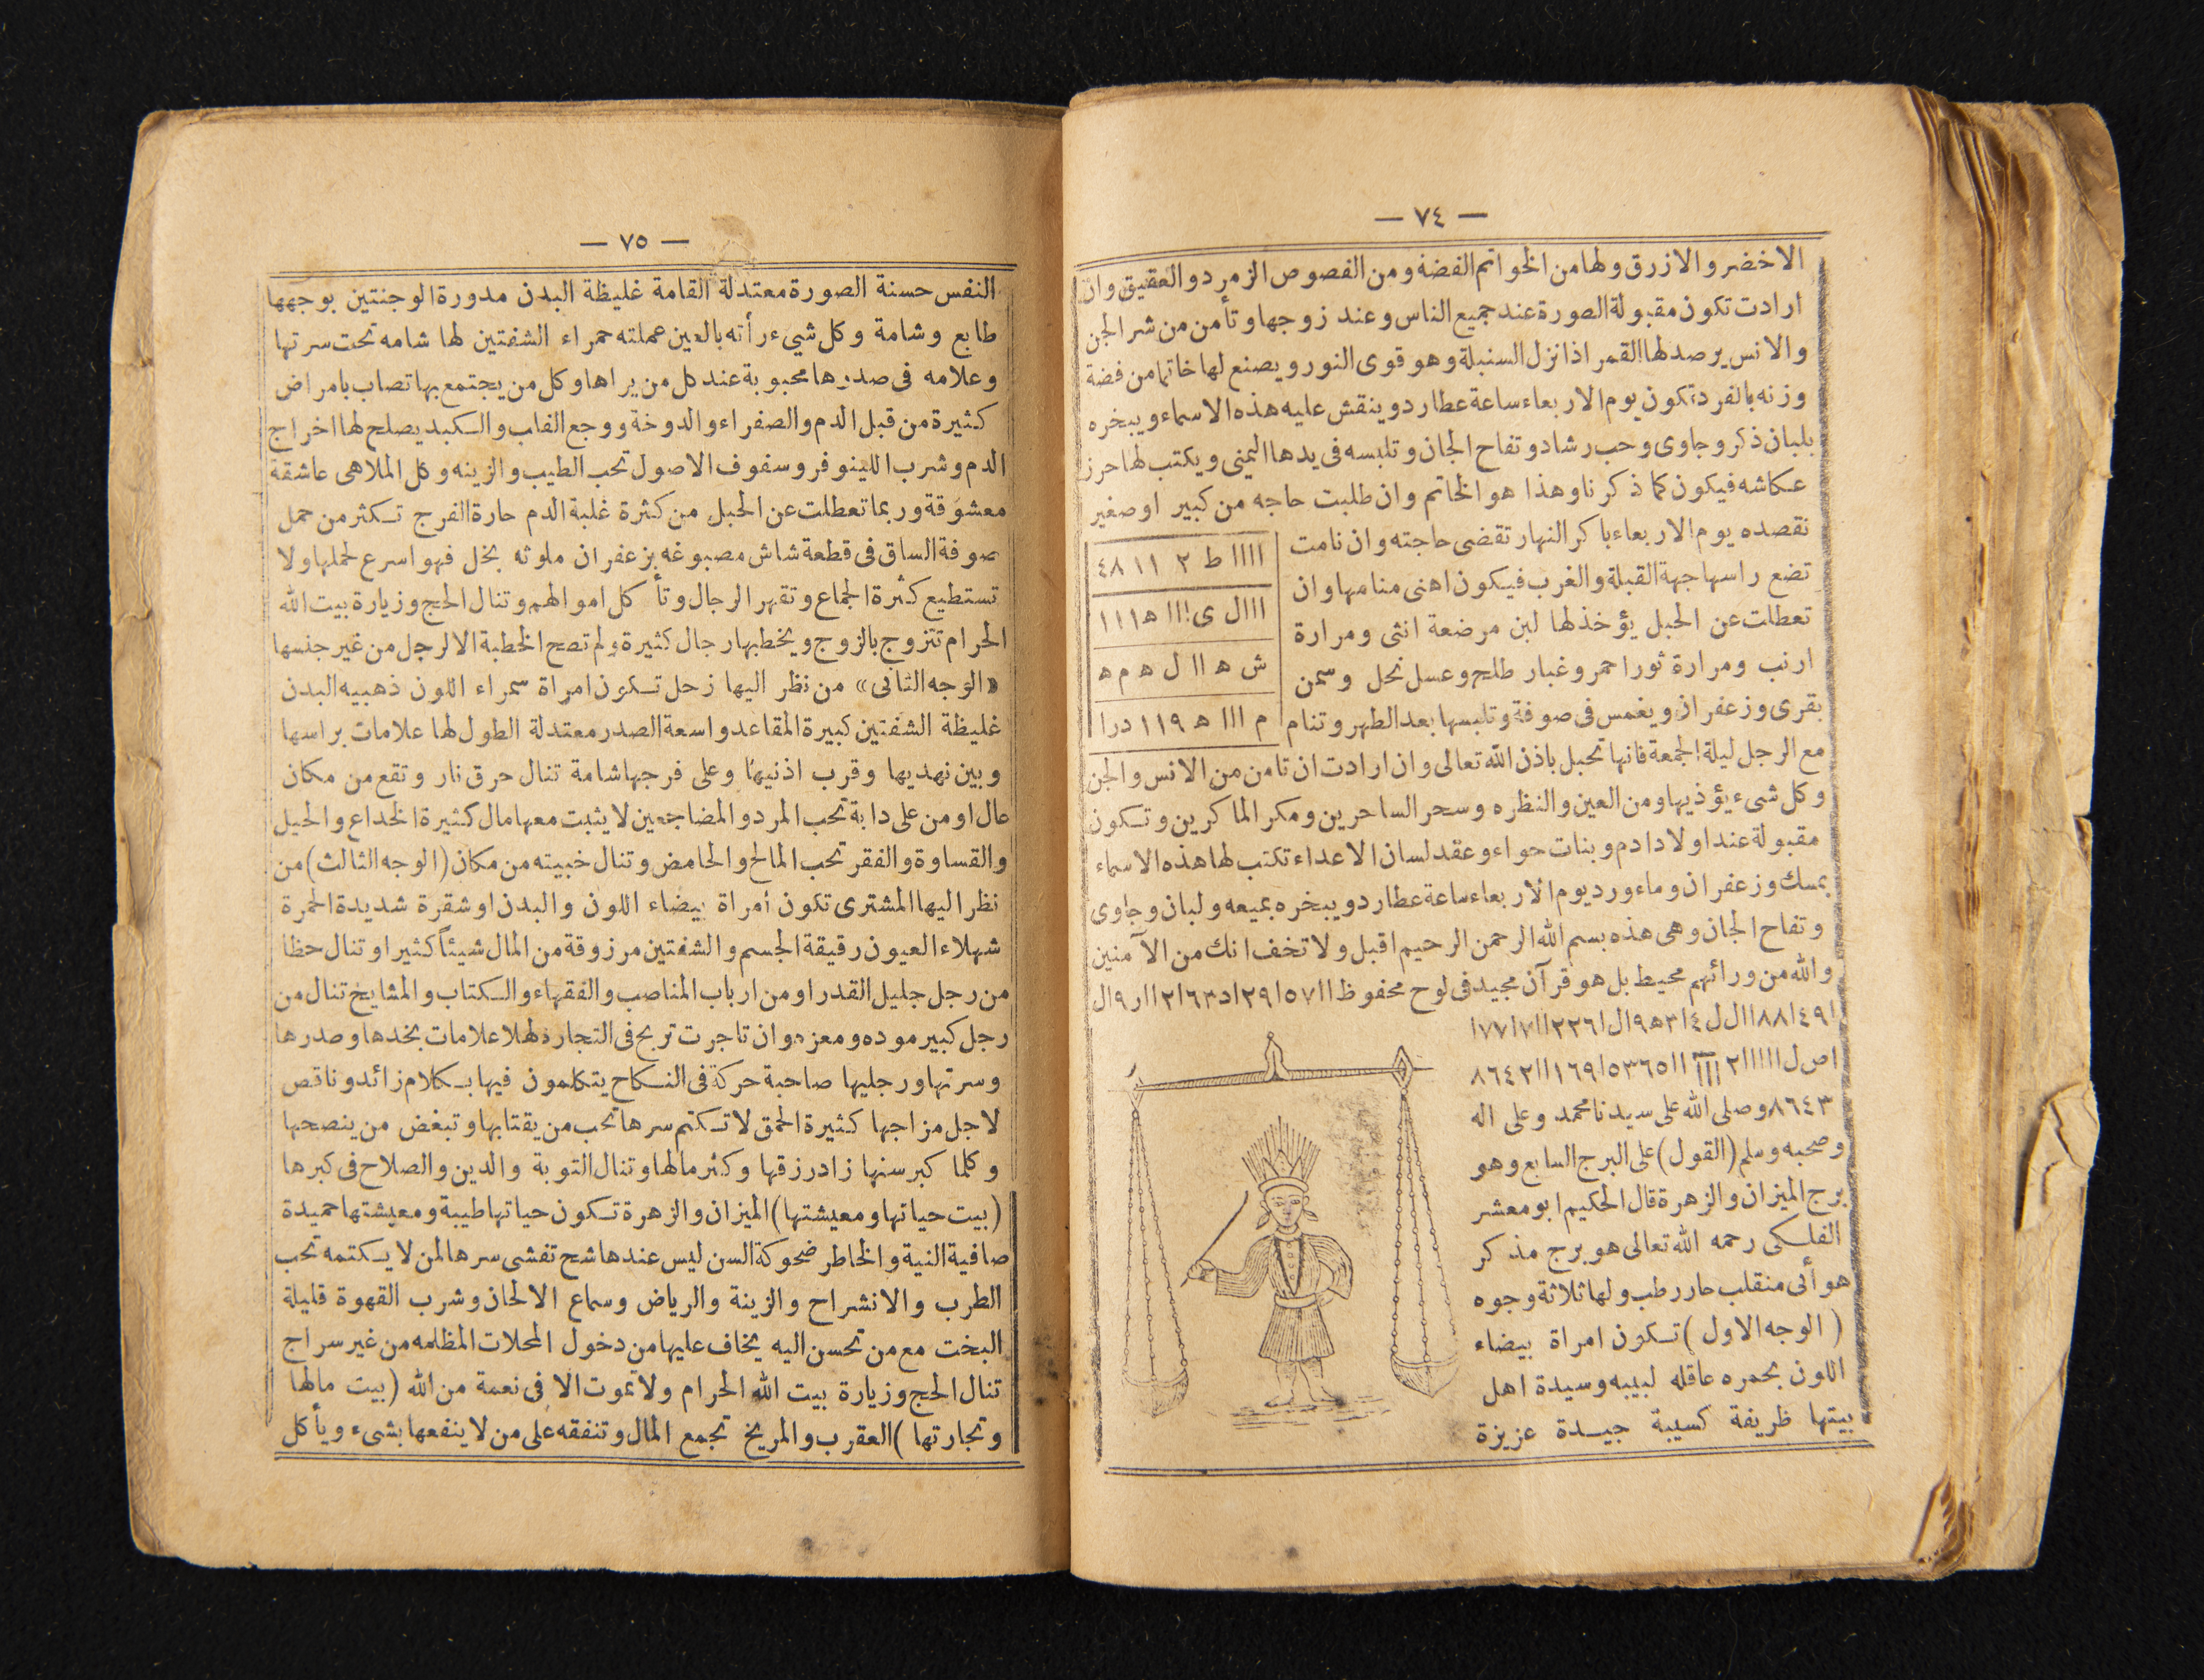 — ٧٤ —
الاخضر والازرق ولها من الخواتم الفضة ومن الفصوص الزمرد والعقيق وان
ارادت تكون مقبولة الصورة عند جميع الناس وعند زوجها وتأمن من شر الجن
والانس يرصد لها القمر اذا نزل السنبلة وهو قوى النور ويصنع لها خاتما من فضة
وزنه بالفرد تكون يوم الاربعاء ساعة عطارد وينقش عليه هذه الاسماء ويبخره
بلبان ذكر وجاوى وحب رشاد وتفاح الجان وتلبسه فى يدها اليمنى ويكتب لها حرز
عكاشه فيكون كما ذكرنا وهذا هو الخاتم وان طلبت حاجه من كبير او صغير
نقصده يوم الاربعاء باكر النهار تقضى حاجته وان نامت
تضع راسها جهة القبلة والغرب فيكون اهنى منامها وان
تعطلت عن الحبل يؤخذ لها لبن مرضعة انثى ومرارة
ارنب ومرارة ثور احمر وغبار طلح وعسل نحل وسمن
بقرى وزعفران ويغمس فى صوفة وتلبسها بعد الطهر وتنام
اااا ط ٢ ١١ ٤٨
شه اا ل ه م ه
م ااا ه ١١٩ درا
مع الرجل ليلة الجمعة فانها تحبل باذن الله تعالى وان ارادت ان تامن من الانس والجن
وكل شىء يؤذيها ومن العين والنظره وسحر الساحرين ومكر الماكرين وتكون
مقبولة عند اولاد ادم وبنات حواء وعقد لسان الاعداء تكتب لها هذه الاسماء
بمسك وزعفران وماء ورد يوم الاربعاء ساعة عطارد ويبخره بميعه ولبان وجاوى
وتفاح الجان وهى هذه بسم الله الرحمن الرحيم اقبل ولا تخف انك من الآمنين
والله من ورائهم محيط بل هو قرآن مجيد فى لوح محفوظ
٨٦٤٣ وصلى الله على سيدنا محمد وعلى اله
وصحبه وسلم (القول) على البرج السابع وهو
برج الميزان والزهرة قال الحكيم ابو معشر
الفلكى رحمه الله تعالى هو برج مذكر
هوأى منقلب حار رطب ولها ثلاثة وجوه
(الوجه الاول) تكون امراة بيضاء
اللون بحمره عاقله لبيبه وسيدة اهل
بيتها ظريفة كسيبة جيدة عزيزة
— ٧٥ —
النفس حسنة الصورة معتدلة القامة غليظة البدن مدورة الوجنتين بوجهها
طابع وشامة وكل شيء رأته بالعين عملته حمراء الشفتين لها شامه تحت سرتها
وعلامه فى صدرها محبوبة عند كل من يراها وكل من يجتمع بها تصاب بامراض
كثيرة من قبل الدم والصفراء والدوخة ووجع القاب والكبد يصلح لها اخراج
الدم وشرب اللينوفر وسفوف الاصول تحب الطيب والزينه وكل الملاهى عاشقة
معشوقة وربما تعطلت عن الحبل من كثرة غلبة الدم حارة الفرج تكثر من حمل
صوفة الساق فى قطعة شاش مصبوغه بزعفران ملوثه بخل فهو اسرع لحملها ولا
تستطيع كثرة الجماع وتقهر الرجال وتأكل اموالهم وتنال الحج وزيارة بيت الله
الحرام تتزوج بالزوج ويخطبها رجال كثيرة ولم تصح الخطبة الا لرجل من غير جنسها
«الوجه الثانى» من نظر اليها زحل تكون امراة سمراء اللون ذهبيه البدن
غليظة الشفتين كبيرة المقاعد واسعة الصدر معتدلة الطول لها علامات براسها
وبين نهديها وقرب اذنيها وعلى فرجها شامة تنال حرق نار وتقع من مكان
عال او من على دابة تحب المرد والمضاجعين لا يثبت معها مال كثيرة الخداع والحيل
والقساوة والفقر تحب المالح والحامض وتنال خبيته من مكان (الوجه الثالث) من
نظر اليها المشترى تكون أمراة بيضاء اللون والبدن او شقرة شديدة الحمرة
شهلاء العيون رقيقة الجسم والشفتين مرزوقة من المال شيئاً كثيرا وتنال حظا
من رجل جليل القدر او من ارباب المناصب والفقهاء والكتاب والمشايخ تنال من
رجل كبير موده ومعزه وان تاجرت تربح فى التجارة لهلا علامات بخدها وصدرها
وسرتها ورجليها صاحبة حركة فى النكاح يتكلمون فيها بكلام زائد وناقص
لاجل مزاجها كثيرة الحمق لا تكتم سرها تحب من يقتابها وتبغض من ينصحها
وكلما كبر سنها زاد رزقها وكثر مالها وتنال التوبة والدين والصلاح فى كبرها
(بيت حياتها ومعيشتها) الميزان والزهرة تكون حياتها طيبة ومعيشتها حميدة
صافية النية والخاطر ضحوكة السن ليس عندها شح تفشى سرها لمن لا يكتمه تحب
الطرب والانشراح والزينة والرياض وسماع الالحان وشرب القهوة قليلة
البخت مع من تحسن اليه يخاف عليها من دخول المحلات المظلمه من غير سراج
تنال الحج وزيارة بيت الله الحرام ولا تموت الا فى نعمة من الله (بيت مالها
وتجارتها) العقرب والمريخ تجمع المال وتنفقه على من لا ينفعها بشىء ويأكل